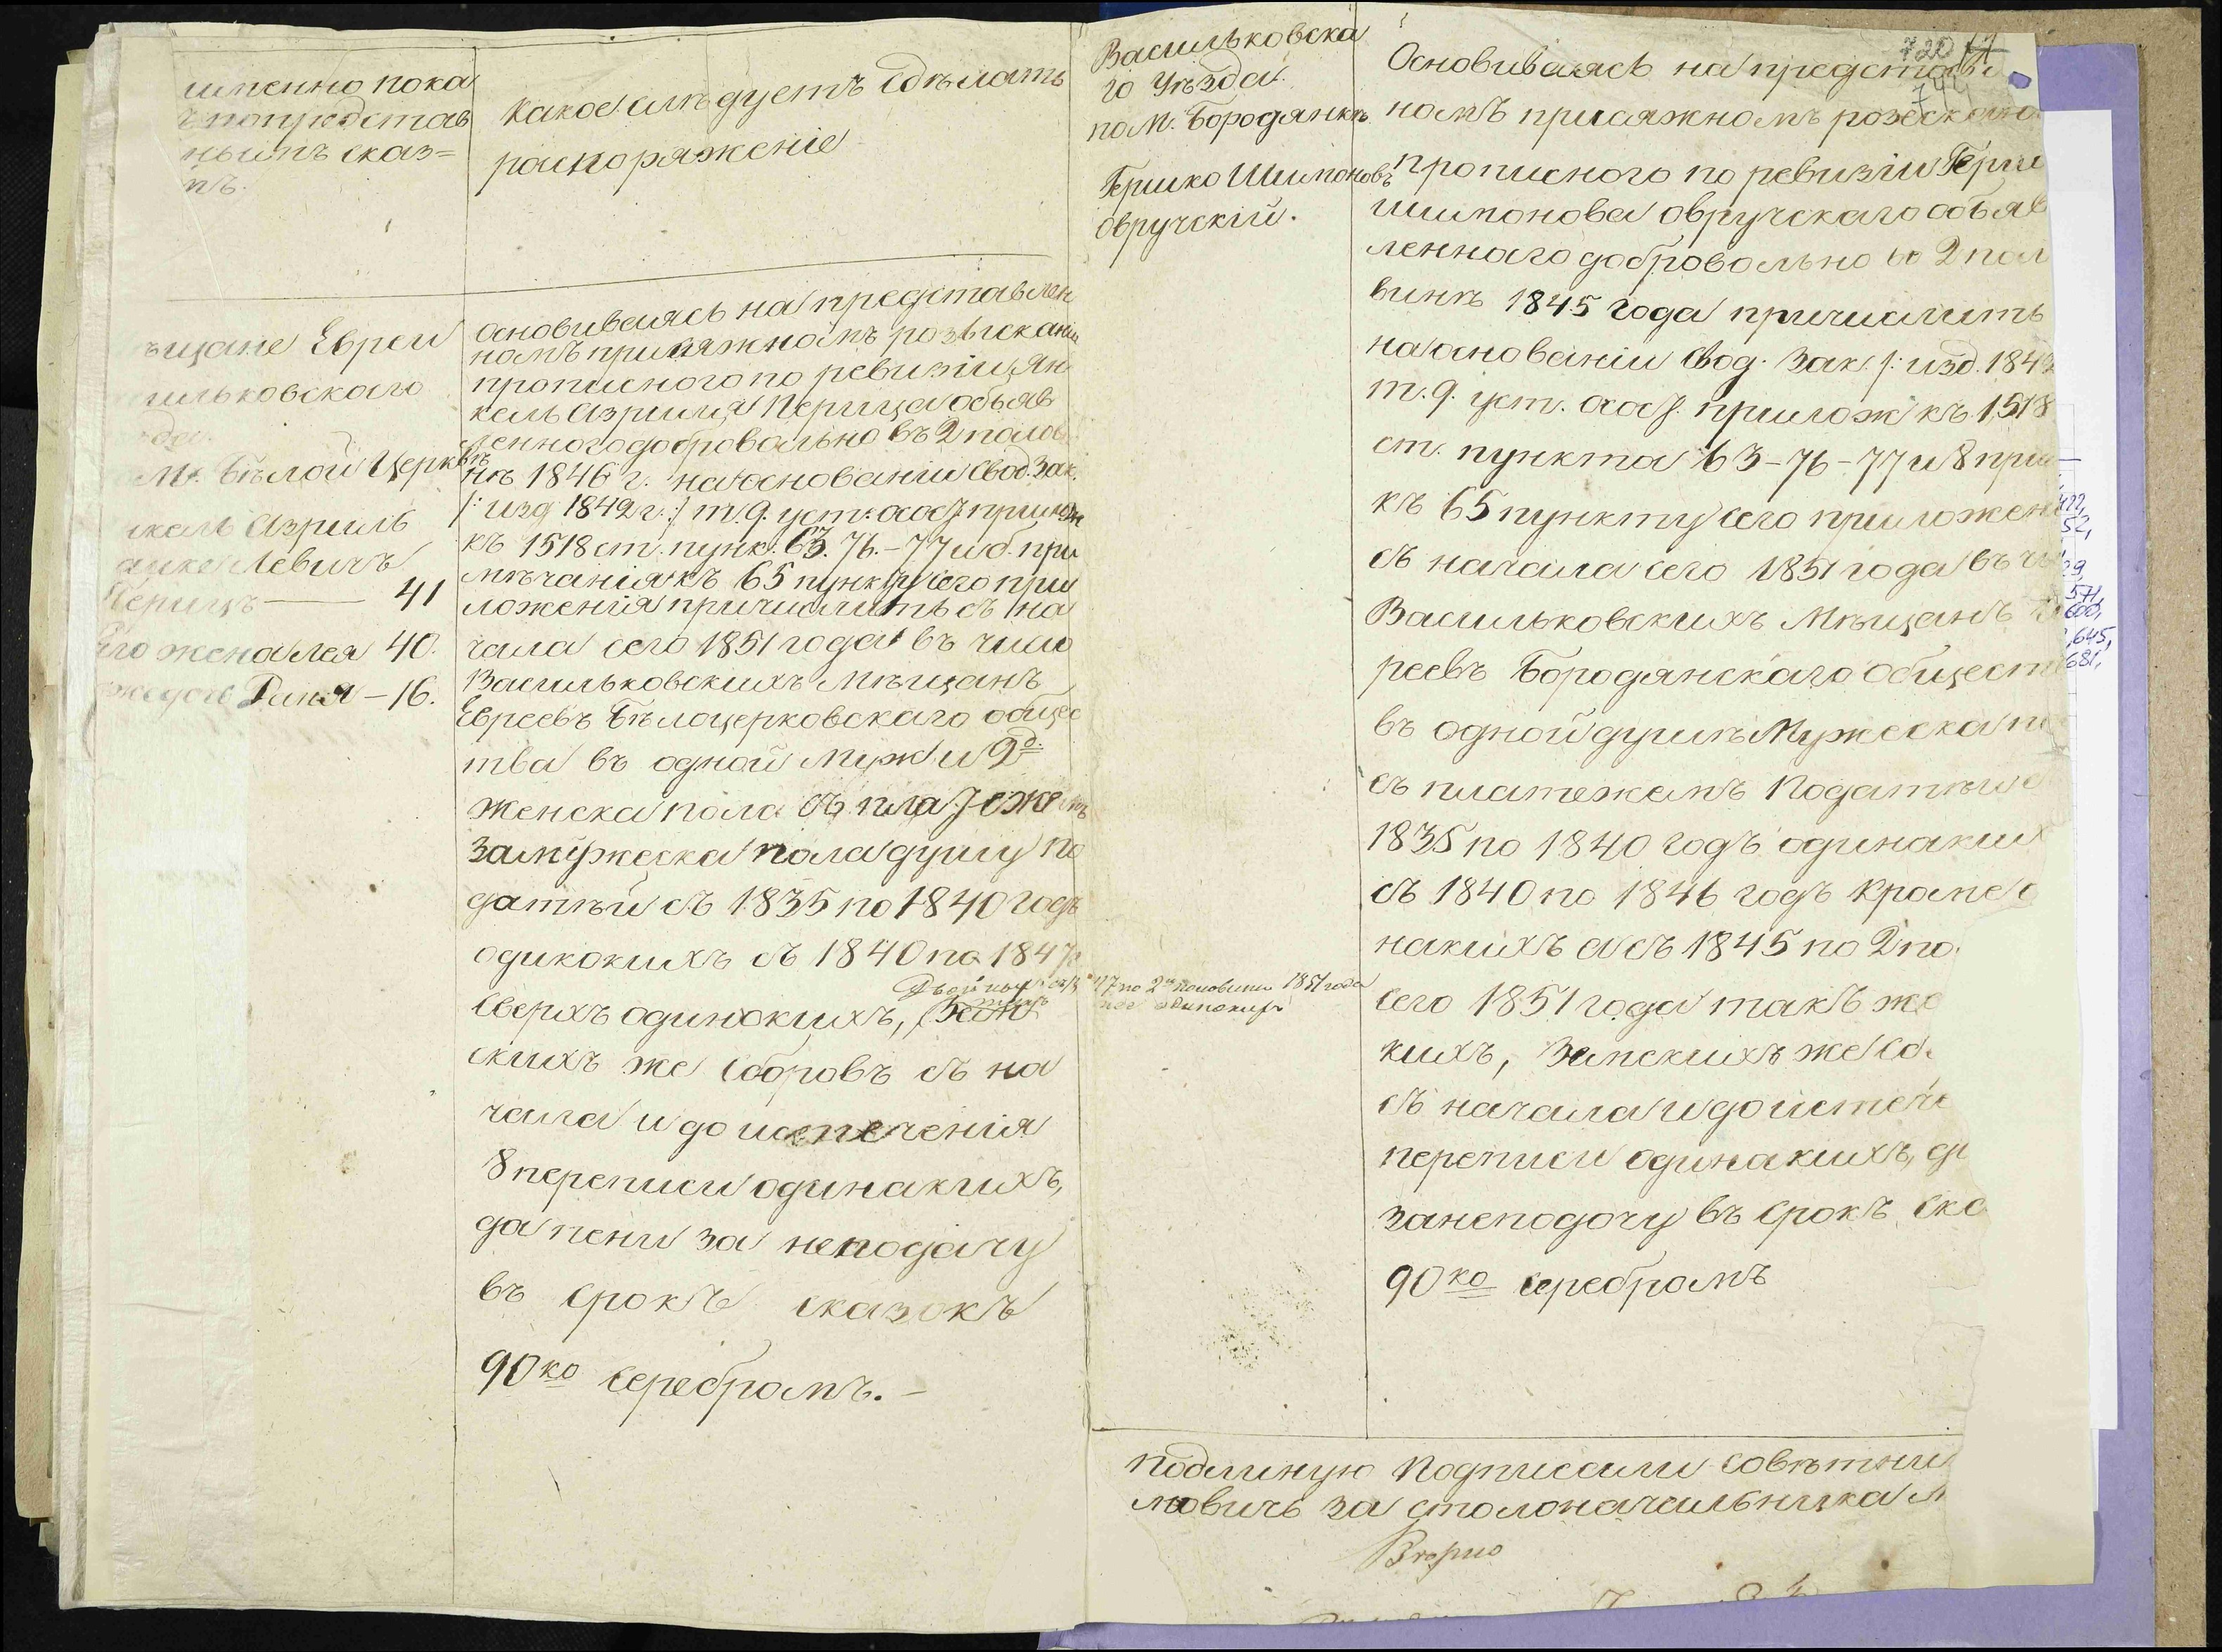 именно пока
ъ попредстав
нымъ сказ=
мъ.
Какое слѣдуетъ сдѣлать
распоряженіе
ѣщане Евреи
сильковскаго
да.
М. Бѣлой Церквѣ
нкель Азриль
Левичъ
Перицъ — 41
его жена Лея 40.
Рися — 16.
Основываясь на представлен
номъ присяжномъ розысканіи
прописного по ревизіи Ян
кель Азриля Перица объяв
леннаго добровольно въ 2 полов
нѣ 1846 г. на основаніи Свод. Зак.
/: изд 1842 г :/ т. 9. уст. о сос. прилож
къ 1518 ст. пунк. 63. 76. - 77 и 8. при
мѣчанія къ 65 пункту сего при
ложенія причислить съ на
чала сего 1851 года въ число
Васильковскихъ Мѣщанъ
Евреевъ Бѣлоцерковскаго общес
тва въ одной муж и 2д.
женска пола съ платежемъ
за мужеска пола душу по
датѣй съ 1835 по 1840 годъ
одинокихъ съ 1840 по 1847
7 по 2й половины 1851 года
сверхъ одинокихъ,
же одинокихъ
скихъ же сборовъ съ на
чала и до истеченія
8 переписи одинакихъ,
да пени за неподачу
въ срокъ сказокъ
90 ко серебромъ. -
Васильковска
го Уѣзда.
по М. Бородянкѣ
Гершко Шимоновъ
Овручскій.
720
Основываясь на представле
номъ присяжномъ розыскано
прописного по ревизіи Герш
Шимонова Овручскаго объяв
леннаго добровольно во 2 пол
винѣ 1845 года причислить
на основаніи Свод. Зак /: изд. 1842
т. 9. уст. о сос. прилож къ 1518
ст. пункта 63 - 76 - 77 и 8 прим
къ 65 пункту сего приложен
съ начала сего 1851 года въ чи
Васильковскихъ Мѣщанъ
реевъ Бородянскаго Общест
въ одной душѣ Мужеска по
съ платежемъ Податѣй с
1835 по 1840 годъ одинаких
съ 1840 по 1846 годъ кроме о
накихъ а съ 1845 по 2 по
сего 1851 года такъ же
кихъ, Земскихъ же сб
съ начала и до истече
переписи одинакихъ, да
за неподачу въ срокъ ска
90 ко серебромъ
422,
52,
29,
571,
600,
645,
681,
Подлиную Подписали Совѣтни
мовичь за столоначальника
Вѣрно